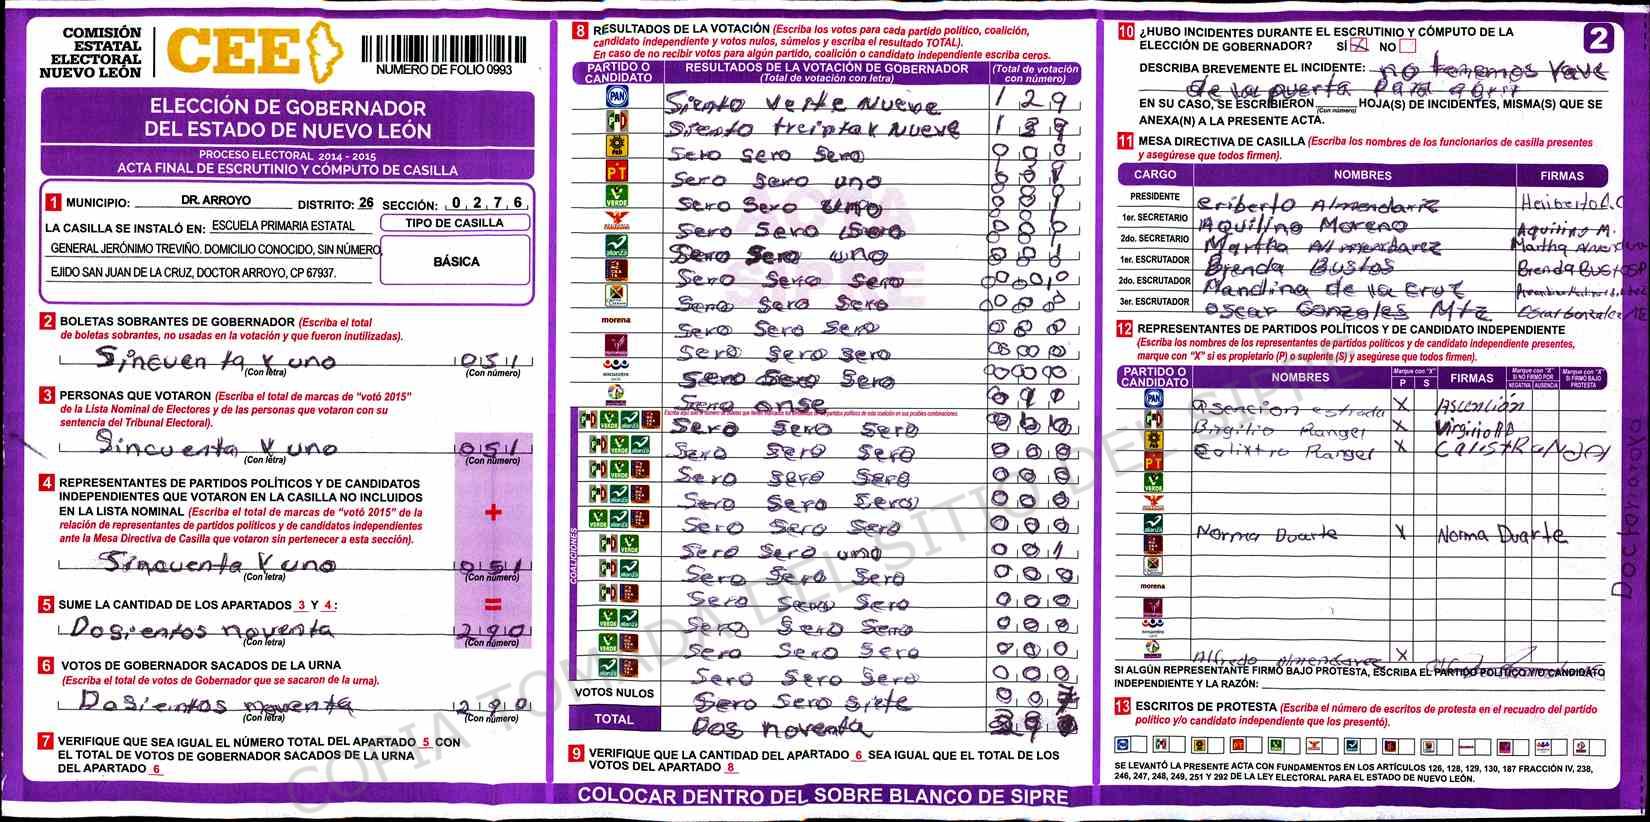 COMISIÓN
ESTATAL
ELECTORAL
NUEVO LEÓN
CEE
NUMERO DE FOLIO 0993
ELECCIÓN DE GOBERNADOR
DEL ESTADO DE NUEVO LEÓN
PROCESO ELECTORAL 2014 - 2015
ACTA FINAL DE ESCRUTINIO Y CÓMPUTO DE CASILLA
1 MUNICIPIO: DR. ARROYO DISTRITO: 26 SECCIÓN: 0 2 7 6
LA CASILLA SE INSTALÓ EN: ESCUELA PRIMARIA ESTATAL
GENERAL JERÓNIMO TREVIÑO. DOMICILIO CONOCIDO, SIN NÚMERO,
EJIDO SAN JUAN DE LA CRUZ, DOCTOR ARROYO, CP 67937.
TIPO DE CASILLA
BÁSICA
2 BOLETAS SOBRANTES DE GOBERNADOR (Escriba el total
de boletas sobrantes, no usadas en la votación y que fueron inutilizadas).
Sincuenta y uno 051
(Con letra) (Con número)
3 PERSONAS QUE VOTARON (Escriba el total de marcas de "votó 2015"
de la Lista Nominal de Electores y de las personas que votaron con su
sentencia del Tribunal Electoral).
Sincuenta y uno 051
(Con letra) (Con número)
4 REPRESENTANTES DE PARTIDOS POLÍTICOS Y DE CANDIDATOS
INDEPENDIENTES QUE VOTARON EN LA CASILLA NO INCLUIDOS
EN LA LISTA NOMINAL (Escriba el total de marcas de "votó 2015" de la
relación de representantes de partidos políticos y de candidatos independientes
ante la Mesa Directiva de Casilla que votaron sin pertenecer a esta sección).
+
Sincuenta y uno 051
(Con letra) (Con número)
5 SUME LA CANTIDAD DE LOS APARTADOS 3 Y 4: =
Dosientos noventa 290
(Con letra) (Con número)
6 VOTOS DE GOBERNADOR SACADOS DE LA URNA
(Escriba el total de votos de Gobernador que se sacaron de la urna).
Dosientos noventa 290
(Con letra) (Con número)
7 VERIFIQUE QUE SEA IGUAL EL NÚMERO TOTAL DEL APARTADO 5 CON
EL TOTAL DE VOTOS DE GOBERNADOR SACADOS DE LA URNA
DEL APARTADO 6
8 RESULTADOS DE LA VOTACIÓN (Escriba los votos para cada partido político, coalición,
candidato independiente y votos nulos, súmelos y escriba el resultado TOTAL).
En caso de no recibir votos para algún partido, coalición o candidato independiente escriba ceros.
PARTIDO O CANDIDATO
RESULTADOS DE LA VOTACIÓN DE GOBERNADOR
(Total de votación con letra)
(Total de votación con número)
PAN Siento veite nueve 129
PRI Siento treinta y nueve 139
PRD Sero sero sero 000
PT Sero sero uno 001
VERDE Sero sero uno 001
Sero sero sero 000
alianza Sero sero uno 001
Sero sero sero 000
Sero sero sero 000
morena Sero sero sero 000
Sero sero sero 000
encuentro social Sero sero sero 000
Sero onse 011
COALICIONES
Sero sero sero 000
Sero sero sero 000
Sero sero sero 000
Sero sero sero 000
Sero sero sero 000
Sero sero uno 001
Sero sero sero 000
Sero sero sero 000
Sero sero sero 000
Sero sero sero 000
Sero sero sero 000
VOTOS NULOS Sero sero siete 007
TOTAL Dos noventa 290
9 VERIFIQUE QUE LA CANTIDAD DEL APARTADO 6 SEA IGUAL QUE EL TOTAL DE LOS
VOTOS DEL APARTADO 8
COLOCAR DENTRO DEL SOBRE BLANCO DE SIPRE
2
10 ¿HUBO INCIDENTES DURANTE EL ESCRUTINIO Y CÓMPUTO DE LA
ELECCIÓN DE GOBERNADOR? SÍ X NO
DESCRIBA BREVEMENTE EL INCIDENTE: no tenemos yave
de la puerta para abrir
EN SU CASO, SE ESCRIBIERON HOJA(S) DE INCIDENTES, MISMA(S) QUE SE
(Con número)
ANEXA(N) A LA PRESENTE ACTA.
11 MESA DIRECTIVA DE CASILLA (Escriba los nombres de los funcionarios de casilla presentes
y asegúrese que todos firmen).
CARGO NOMBRES FIRMAS
PRESIDENTE Eriberto Almendariz Heriberto A.C
1er. SECRETARIO Aquilino Moreno Aquilino M.
2do. SECRETARIO Martha Almendarez Martha
1er. ESCRUTADOR Brenda Bustos Brenda Bustos
2do. ESCRUTADOR Mandina de la Cruz
3er. ESCRUTADOR Oscar Gonzales Mtz Oscar Gonzalez
12 REPRESENTANTES DE PARTIDOS POLÍTICOS Y DE CANDIDATO INDEPENDIENTE
(Escriba los nombres de los representantes de partidos políticos y de candidato independiente presentes,
marque con "X" si es propietario (P) o suplente (S) y asegúrese que todos firmen).
PARTIDO O CANDIDATO NOMBRES Marque con "X" P S FIRMAS Marque con "X" SI NO FIRMÓ POR NEGATIVA AUSENCIA Marque con "X" SI FIRMÓ BAJO PROTESTA
PAN Asencion estrada X Ascención
PRI Birgilio Rangel X Virgilio
PRD Calixtro Rangel X
PT
VERDE
alianza Norma Duarte X Norma Duarte
morena
Alfredo Almendarez X
SI ALGÚN REPRESENTANTE FIRMÓ BAJO PROTESTA, ESCRIBA EL PARTIDO POLÍTICO Y/O CANDIDATO
INDEPENDIENTE Y LA RAZÓN:
13 ESCRITOS DE PROTESTA (Escriba el número de escritos de protesta en el recuadro del partido
político y/o candidato independiente que los presentó).
SE LEVANTÓ LA PRESENTE ACTA CON FUNDAMENTOS EN LOS ARTÍCULOS 126, 128, 129, 130, 187 FRACCIÓN IV, 238,
246, 247, 248, 249, 251 Y 292 DE LA LEY ELECTORAL PARA EL ESTADO DE NUEVO LEÓN.
COPIA TOMADA DEL SITIO DEL SIPRE